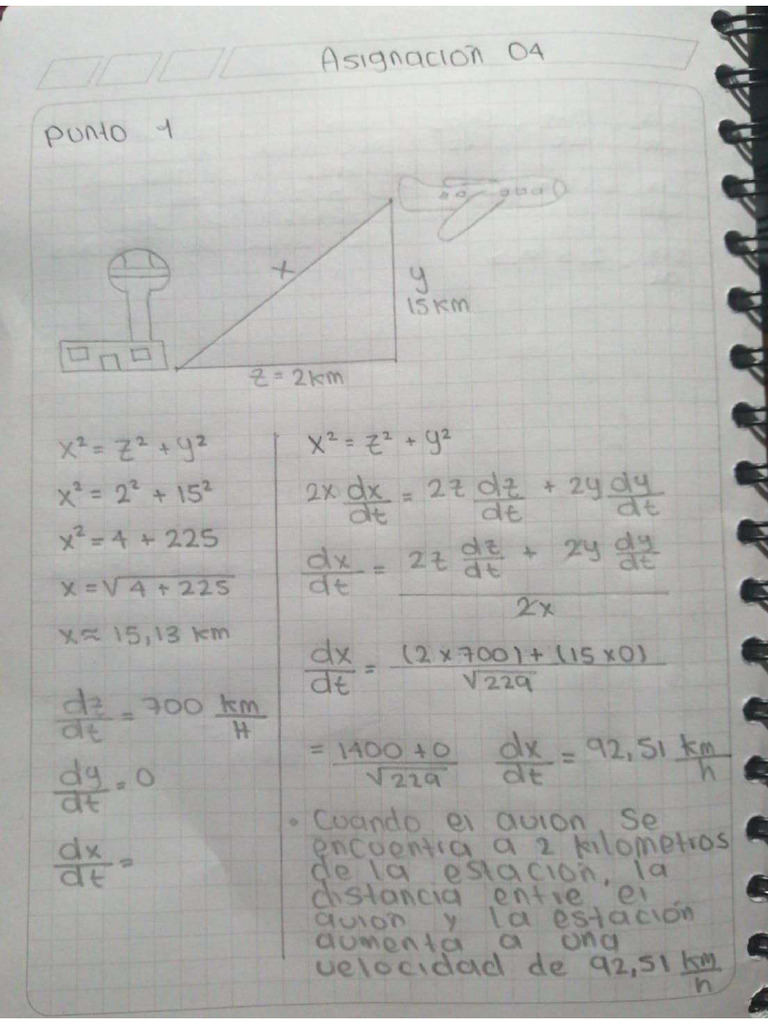 Asignacion 04
Punto 1
x
y
15 km
z = 2 km
x² = z² + y²
x² = 2² + 15²
x² = 4 + 225
x = √4 + 225
x ≈ 15,13 km
dz/dt = 700 km/H
dy/dt = 0
dx/dt =
x² = z² + y²
2x dx/dt = 2z dz/dt + 2y dy/dt
dx/dt = 2z dz/dt + 2y dy/dt / 2x
dx/dt = (2 x 700) + (15 x 0) / √229
= 1400 + 0 / √229 dx/dt = 92,51 km/h
• Cuando el avion se
encuentra a 2 kilometros
de la estacion, la
distancia entre el
avion y la estación
aumenta a una
velocidad de 92,51 km/h